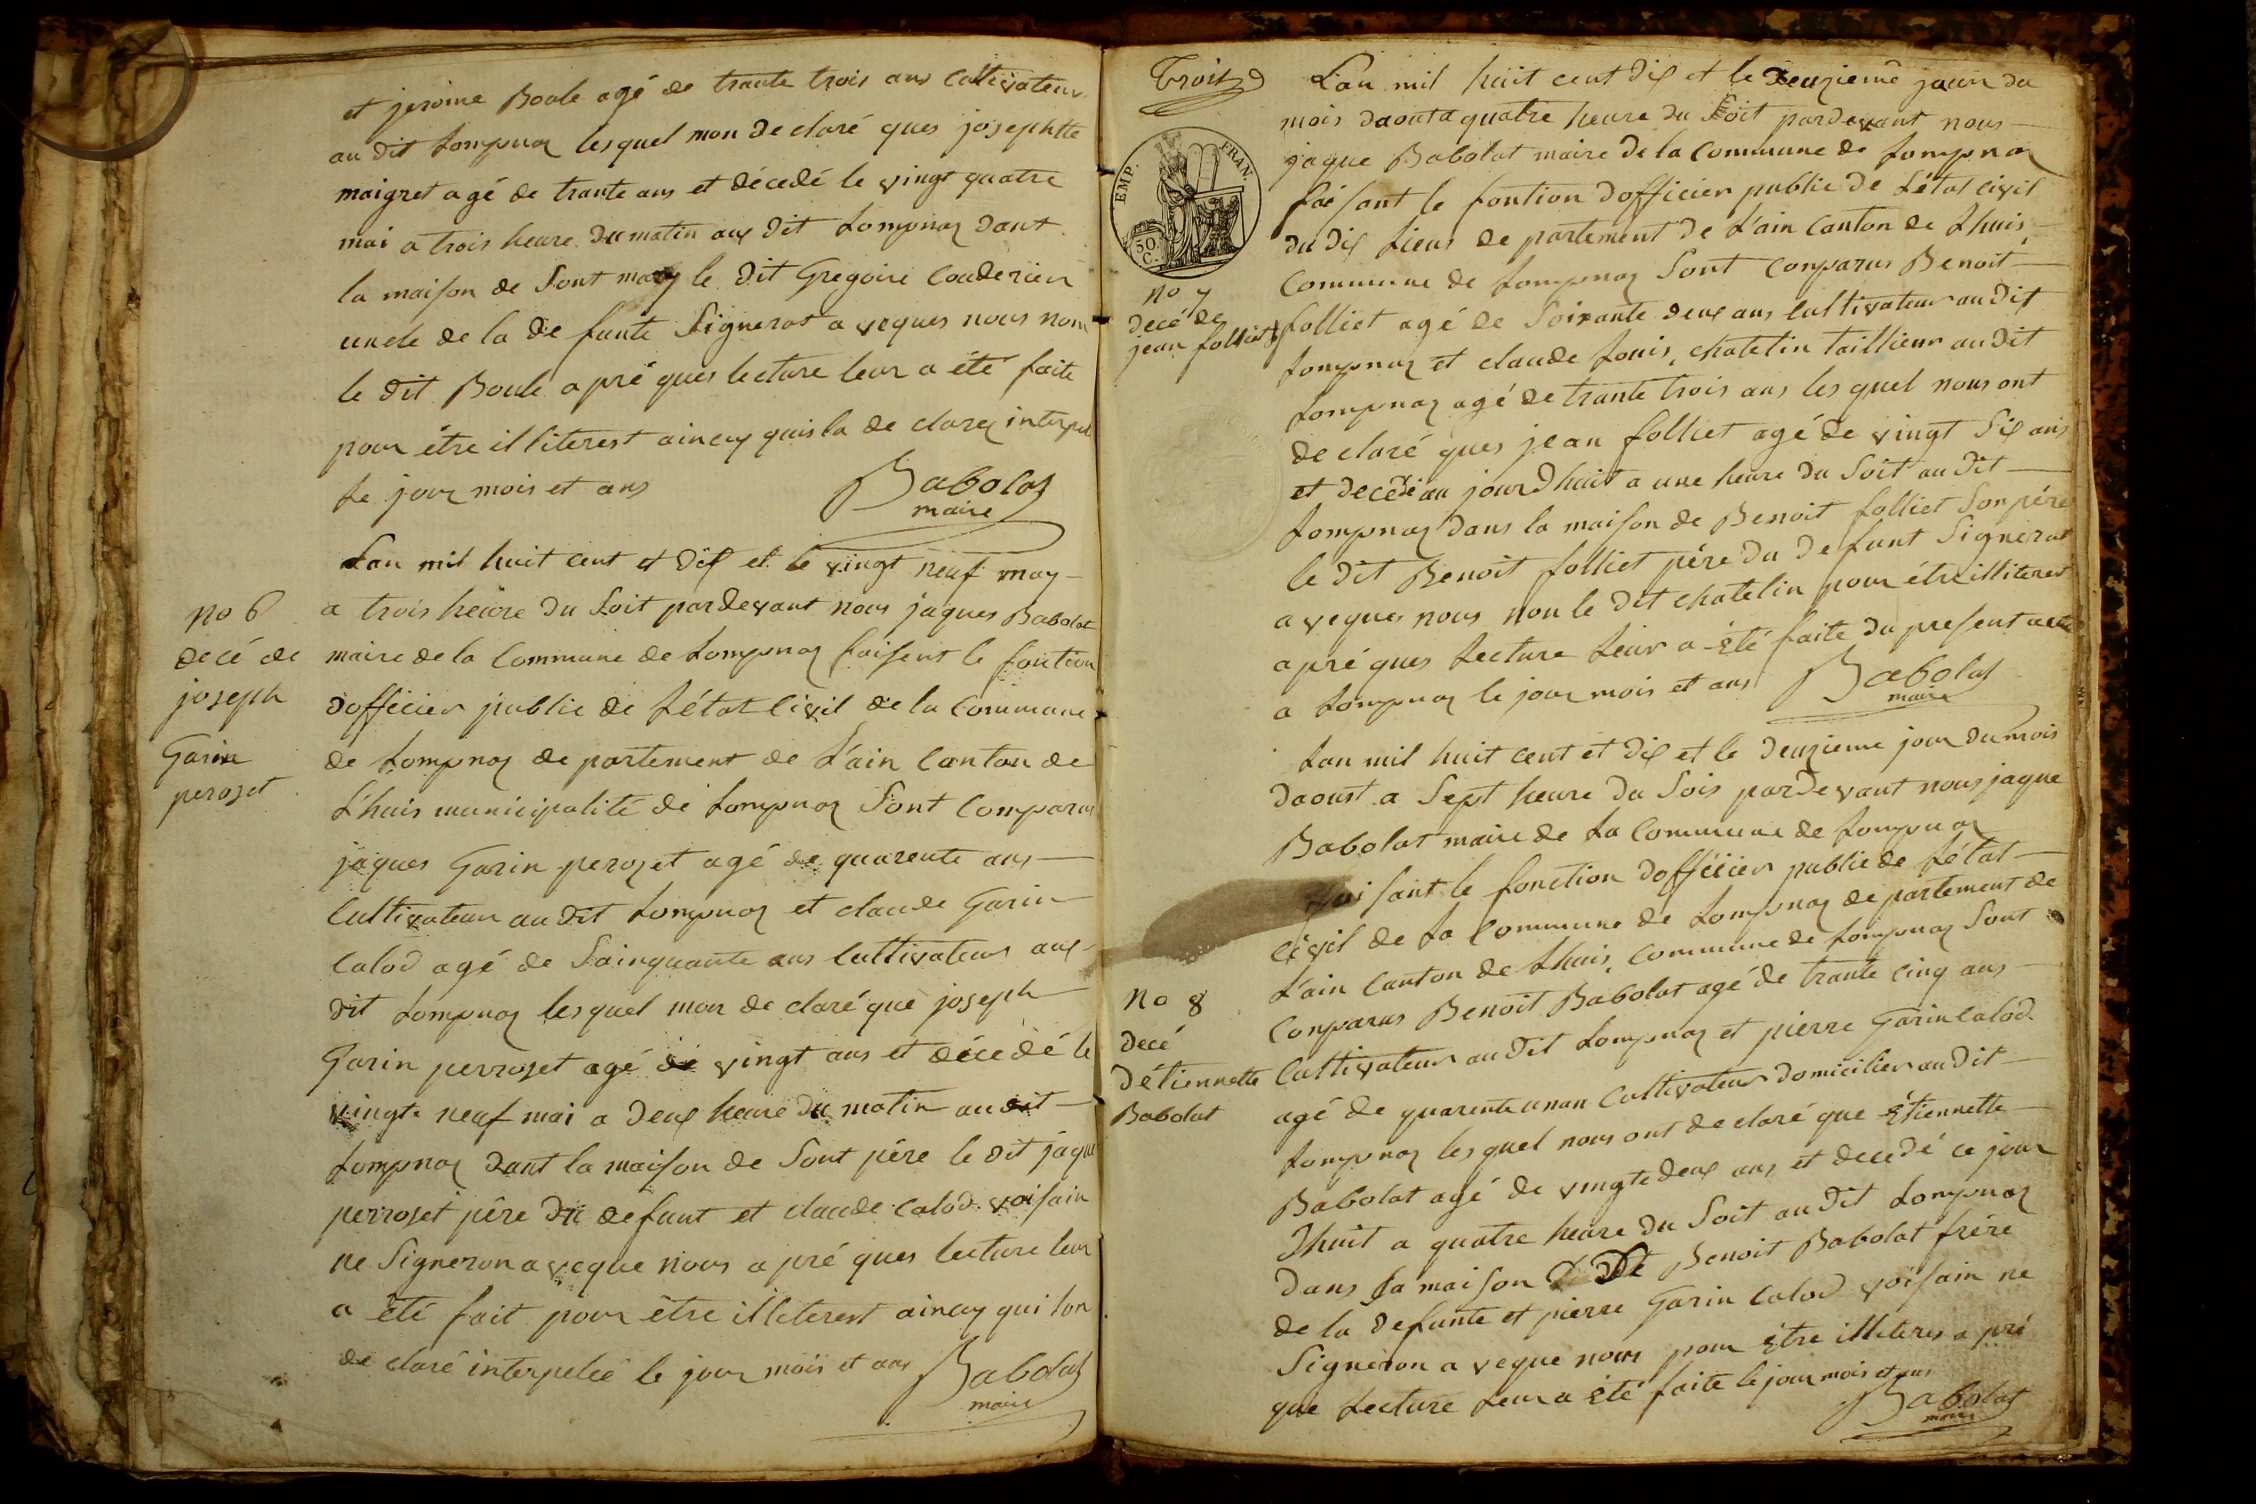 et jerome Boule agé de trante trois ans Cultivateur
au dit Lompnaz lesquel mon declaré ques josephtte
maigret agé de trante ans et décedé le vingt quatre
mai a trois heure du matin aux dit Lompnaz dant
la maison de Sont mary le dit Gregoire Couderier
uncle de la de funte Signerat a veques nous nom
le dit Boule a pré ques lecture leur a été faite
pour être illiterest aincy quis la de clarez interpel
le jour mois et ans
Babolat
maire
Lan mil huit cent et dix et le vingt neuf may
no 6
decé de
joseph
Garin
perozet
a trois heure du Soit pardevant nous jaques Babolat
maire de la Commune de Lompnaz faisent le fontion
dofficier public de Létat Civil de la Commune
de Lompnaz de partement de L'ain Canton de
L'huis municipalité de Lompnaz Sont Comparus
jaques Garin perozet agé de quarente ans
Cultivateur au dit Lompnaz et claude Garin
Calod agé de Sainquante ans Cultivateur aux
dit Lompnaz lesquel mon de claré que joseph
Garin perrozet agé de vingt ans et décedé le
vingte neuf mai a deux heure du matin au dit
Lompnaz dant la maison de Sont pére le dit jaque
perrozet pêre du defunt et claude Calod voisain
ne Signeron a veque nous a pré ques lecture leur
a été fait pour être illeterest aincy qui lon
de claré interpelée le jour mois et ans
Babolat
maire
Trois
EMP. FRAN.
50 C.
no 7
decé de
jean folliet
Lan mil huit cent dix et le deuzieme jour du
mois daout a quatre heure du Soit pardevant nous
jaque Babolat maire de la Commune de Lompnaz
faisant le fontion dofficier public de Létat civil
du dix Lieus de partement de L'ain Canton de Lhuis
Commune de Lompnaz Sont Conparus Benoit
folliet agé de Soixante deux ans Cultivateur au dit
Lompnaz et claude Louis chatelin taillieur au dit
Lompnaz agé de trante trois ans les quel nous ont
de claré ques jean folliet agé de vingt Six ans
et decedé au jourdhuit a une heure du Soit au dit
Lompnaz dans la maison de Benoit folliet Son pére
le dit Benoit folliet pére du defunt Signerat
a veques nous non le dit chatelin pour étre illiterest
a pré ques Lecture Leur a été faite du present acte
a Lompnaz le jour mois et ans
Babolat
maire
Lan mil huit cent et dix et le deuzieme jour du mois
daoust a Sept heure du Sois pardevant nous jaque
Babolat maire de La Commune de Lompnaz
faisant le fonction dofficier public de Létat
civil de La Commune de Lompnaz de partement de
L'ain Canton de Lhuis, Commune de Lompnaz Sont
no 8
decé
détiennette
Babolat
Conparus Benoit Babolat agé de trante cinq ans
Cultivateur au dit Lompnaz et pierre Garin Calod
agé de quarente unan Cultivateur domicilier au dit
Lompnaz lesquel nous ont declaré que Etiennette
Babolat agé de vingte deux ans et decedé ce jour
dhuit a quatre heure du Soit au dit Lompnaz
dans La maison de Benoit Babolat frére
de la defunte et pierre Garin Calod voisain ne
Signeron a veque nous pour Etre illiteres a pré
que Lecture Leur a Eté faite le jour mois et ans
Babolat
maire